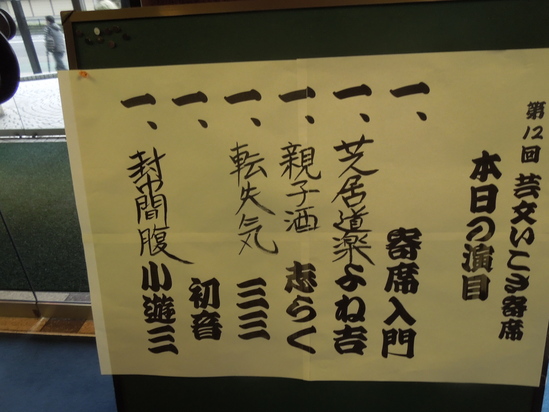 第12回 芸文いこま寄席
本日の演目
一、寄席入門
一、芝居道楽 よね吉
一、親子酒 志らく
一、転失気 三三
一、初音
一、封間腹 小遊三